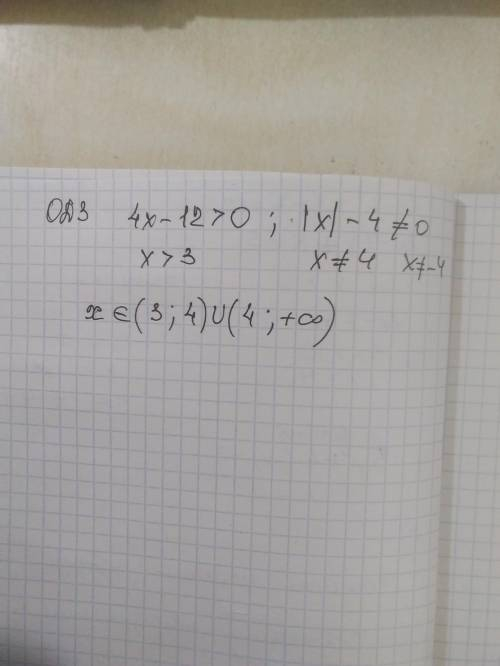 ОДЗ 4x-12>0; |x|-4≠0
x>3 x≠4 x≠-4
x∈(3;4)∪(4;+∞)